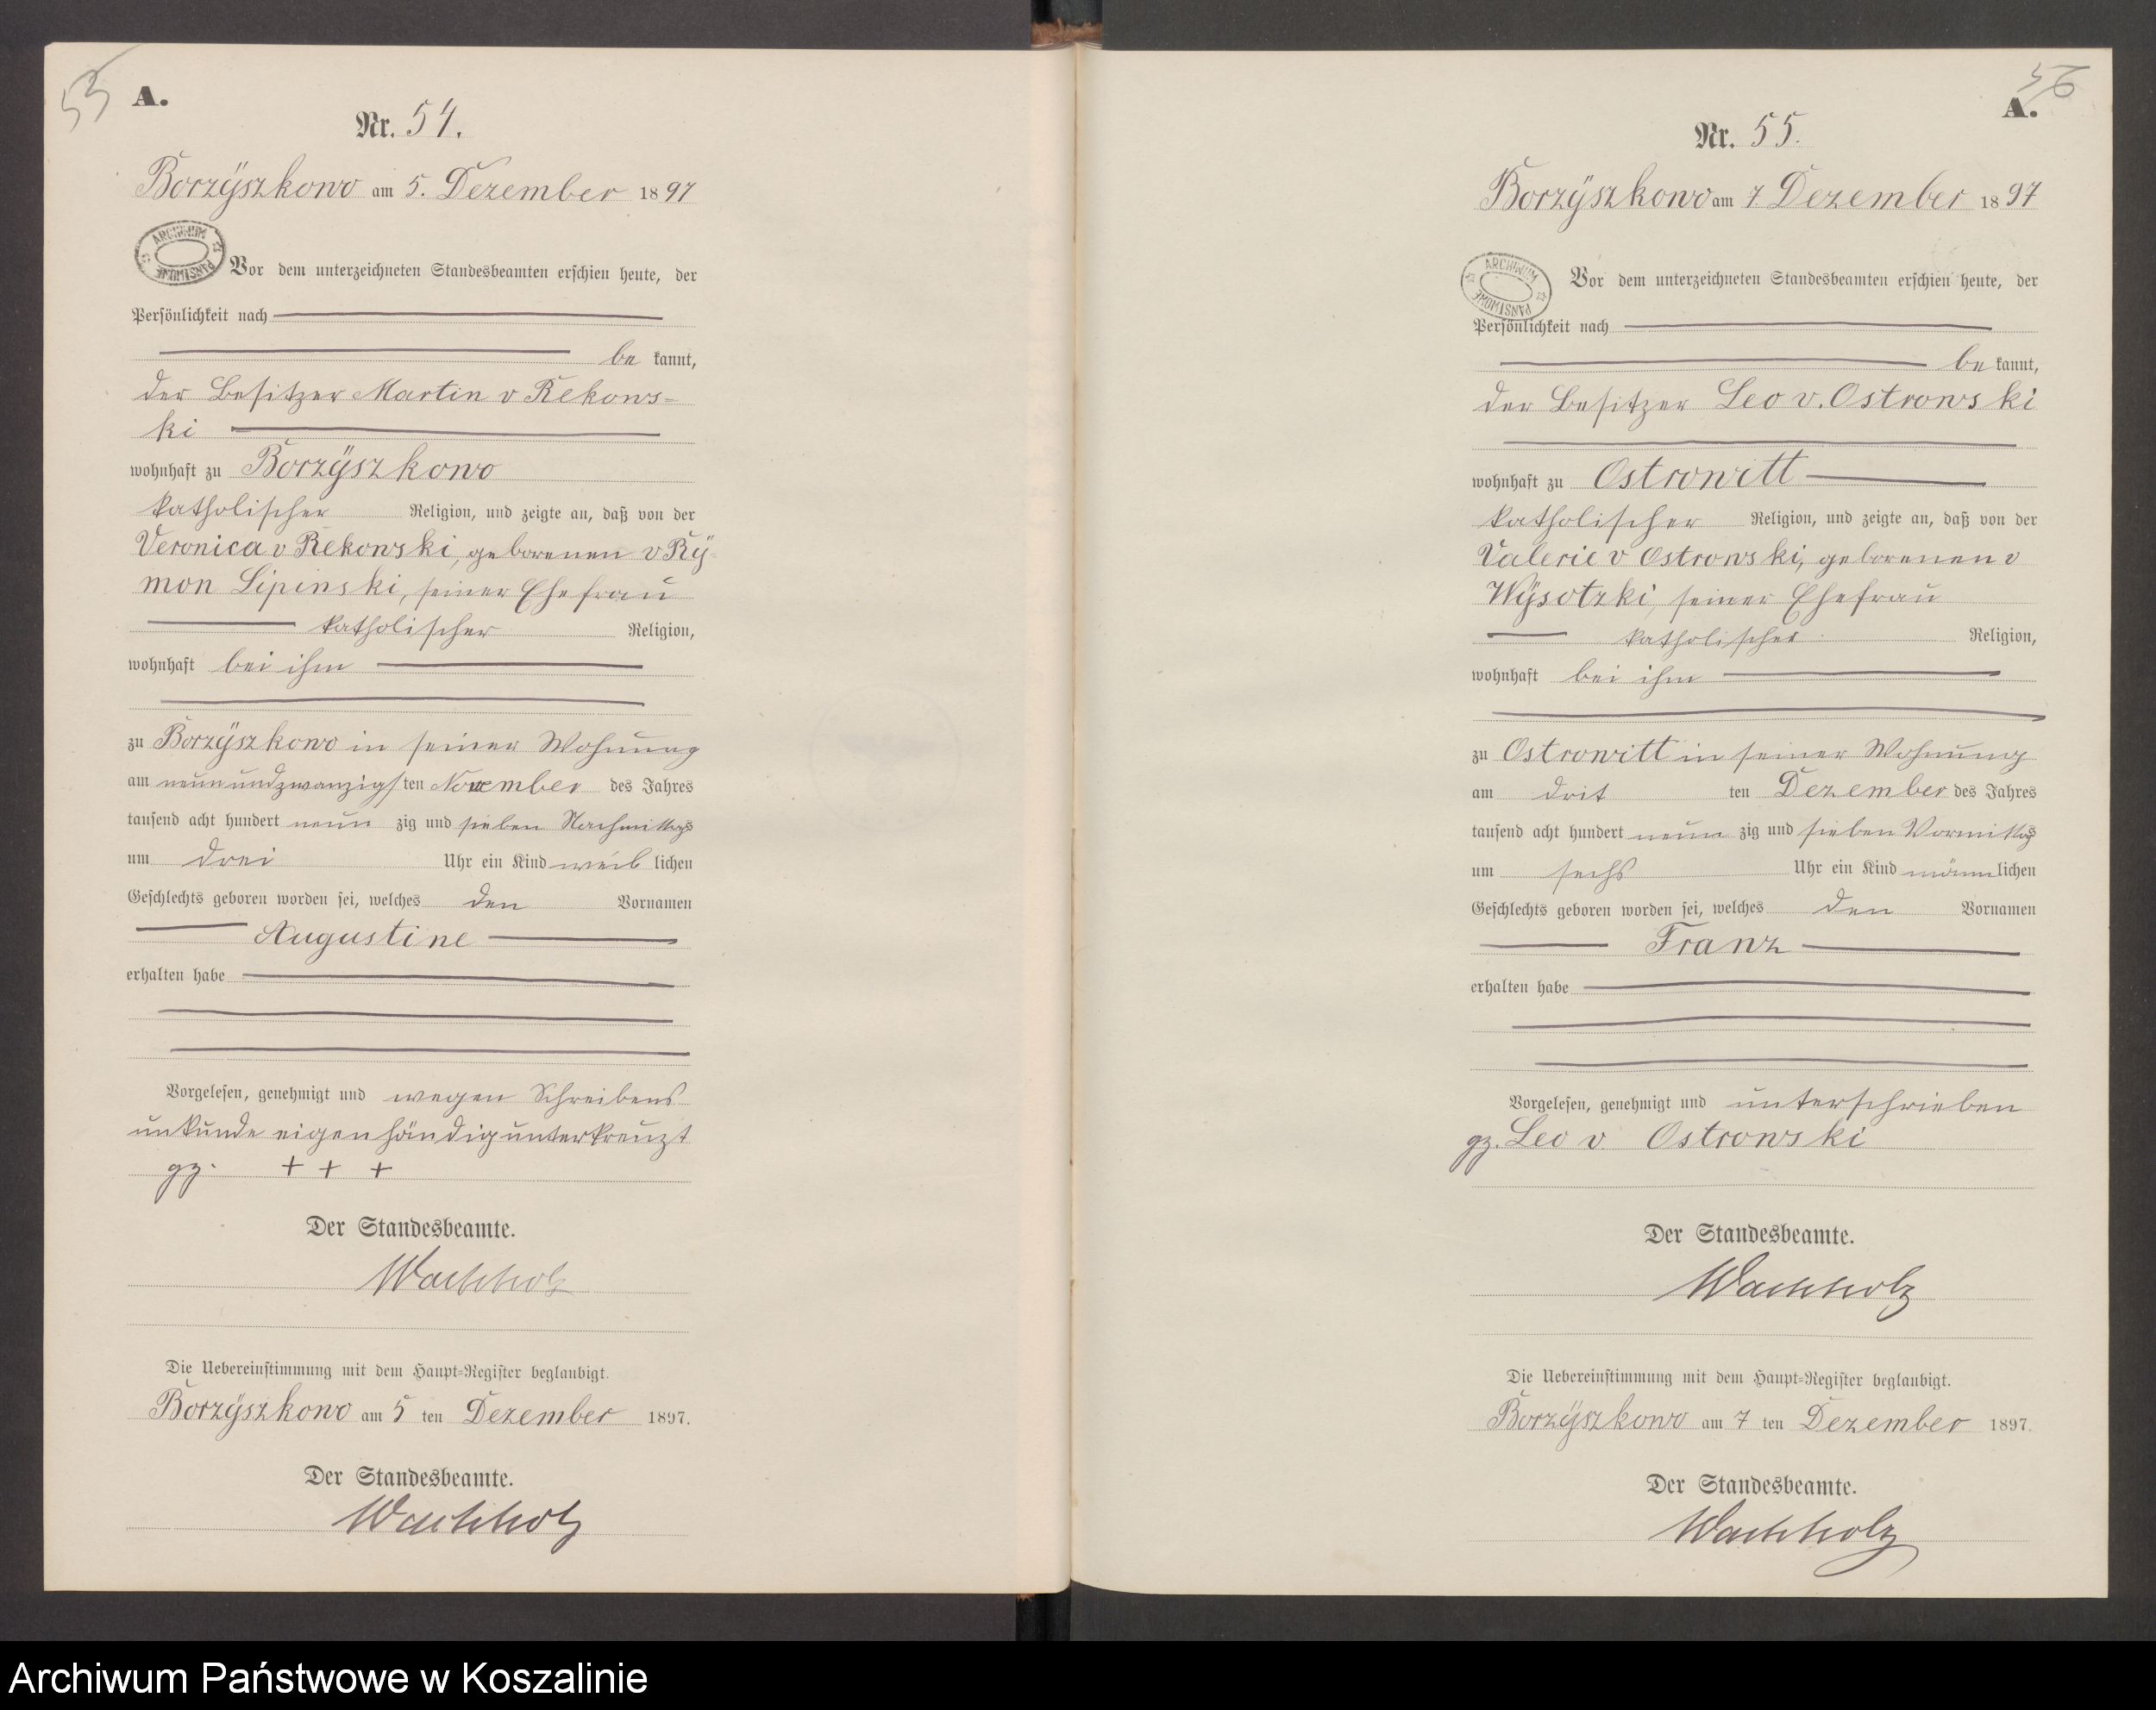 55
A.
Nr. 54.
Borzÿszkowo am 5. Dezember 1897
ARCHIWUM PAŃSTWOWE
Vor dem unterzeichneten Standesbeamten erschien heute, der
Persönlichkeit nach
be kannt,
der Besitzer Martin v Rekows=
ki
wohnhaft zu Borzÿszkowo
katholischer Religion, und zeigte an, daß von der
Veronica v Rekowski, geborenen v Rÿ=
mon Lipinski, seiner Ehefrau
katholischer Religion,
wohnhaft bei ihm
zu Borzÿszkowo in seiner Wohnung
am neunundzwanzigsten November des Jahres
tausend acht hundert neun zig und sieben Nachmittags
um drei Uhr ein Kind weib lichen
Geschlechts geboren worden sei, welches den Vornamen
Augustine
erhalten habe
Vorgelesen, genehmigt und wegen Schreibens
unkunde eigenhändig unterkreuzt
gz. + + +
Der Standesbeamte.
Wachholz
Die Uebereinstimmung mit dem Haupt=Register beglaubigt.
Borzÿszkowo am 5 ten Dezember 1897.
Der Standesbeamte.
Wachholz
56
A.
Nr. 55.
Borzÿszkowo am 7 Dezember 1897
ARCHIWUM PAŃSTWOWE
Vor dem unterzeichneten Standesbeamten erschien heute, der
Persönlichkeit nach
be kannt,
der Besitzer Leo v. Ostrowski
wohnhaft zu Ostrowitt
katholischer Religion, und zeigte an, daß von der
Valerie v Ostrowski, geborenen v
Wÿsotzki, seiner Ehefrau
katholischer Religion,
wohnhaft bei ihm
zu Ostrowitt in seiner Wohnung
am drit ten Dezember des Jahres
tausend acht hundert neun zig und sieben Vormittags
um sechs Uhr ein Kind männlichen
Geschlechts geboren worden sei, welches den Vornamen
Franz
erhalten habe
Vorgelesen, genehmigt und unterschrieben
gz. Leo v Ostrowski
Der Standesbeamte.
Wachholz
Die Uebereinstimmung mit dem Haupt=Register beglaubigt.
Borzÿszkowo am 7 ten Dezember 1897.
Der Standesbeamte.
Wachholz
Archiwum Państwowe w Koszalinie